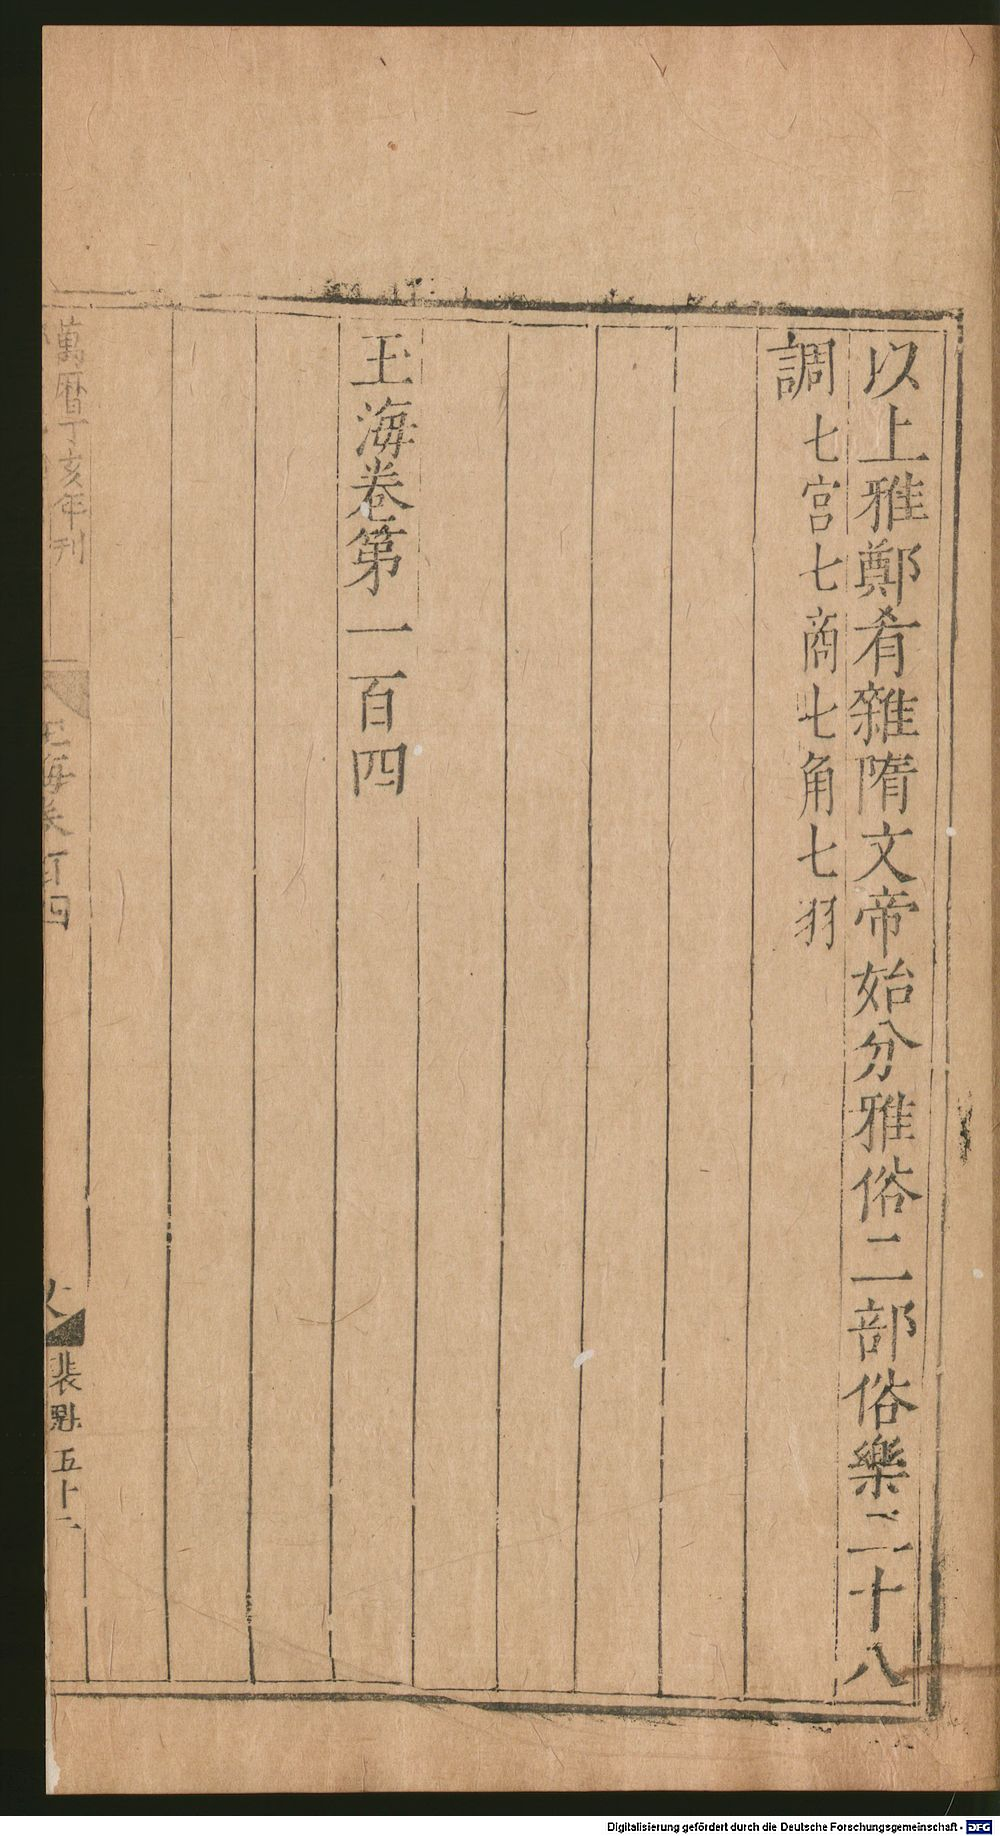 以上雅鄭肴雜隋文帝始分雅俗二部俗樂二十八
調七宫七商七角七羽
玉海卷第一百四
萬曆丁亥年刊
玉海卷百四
裴魁五十二
Digitalisierung gefördert durch die Deutsche Forschungsgemeinschaft - DFG